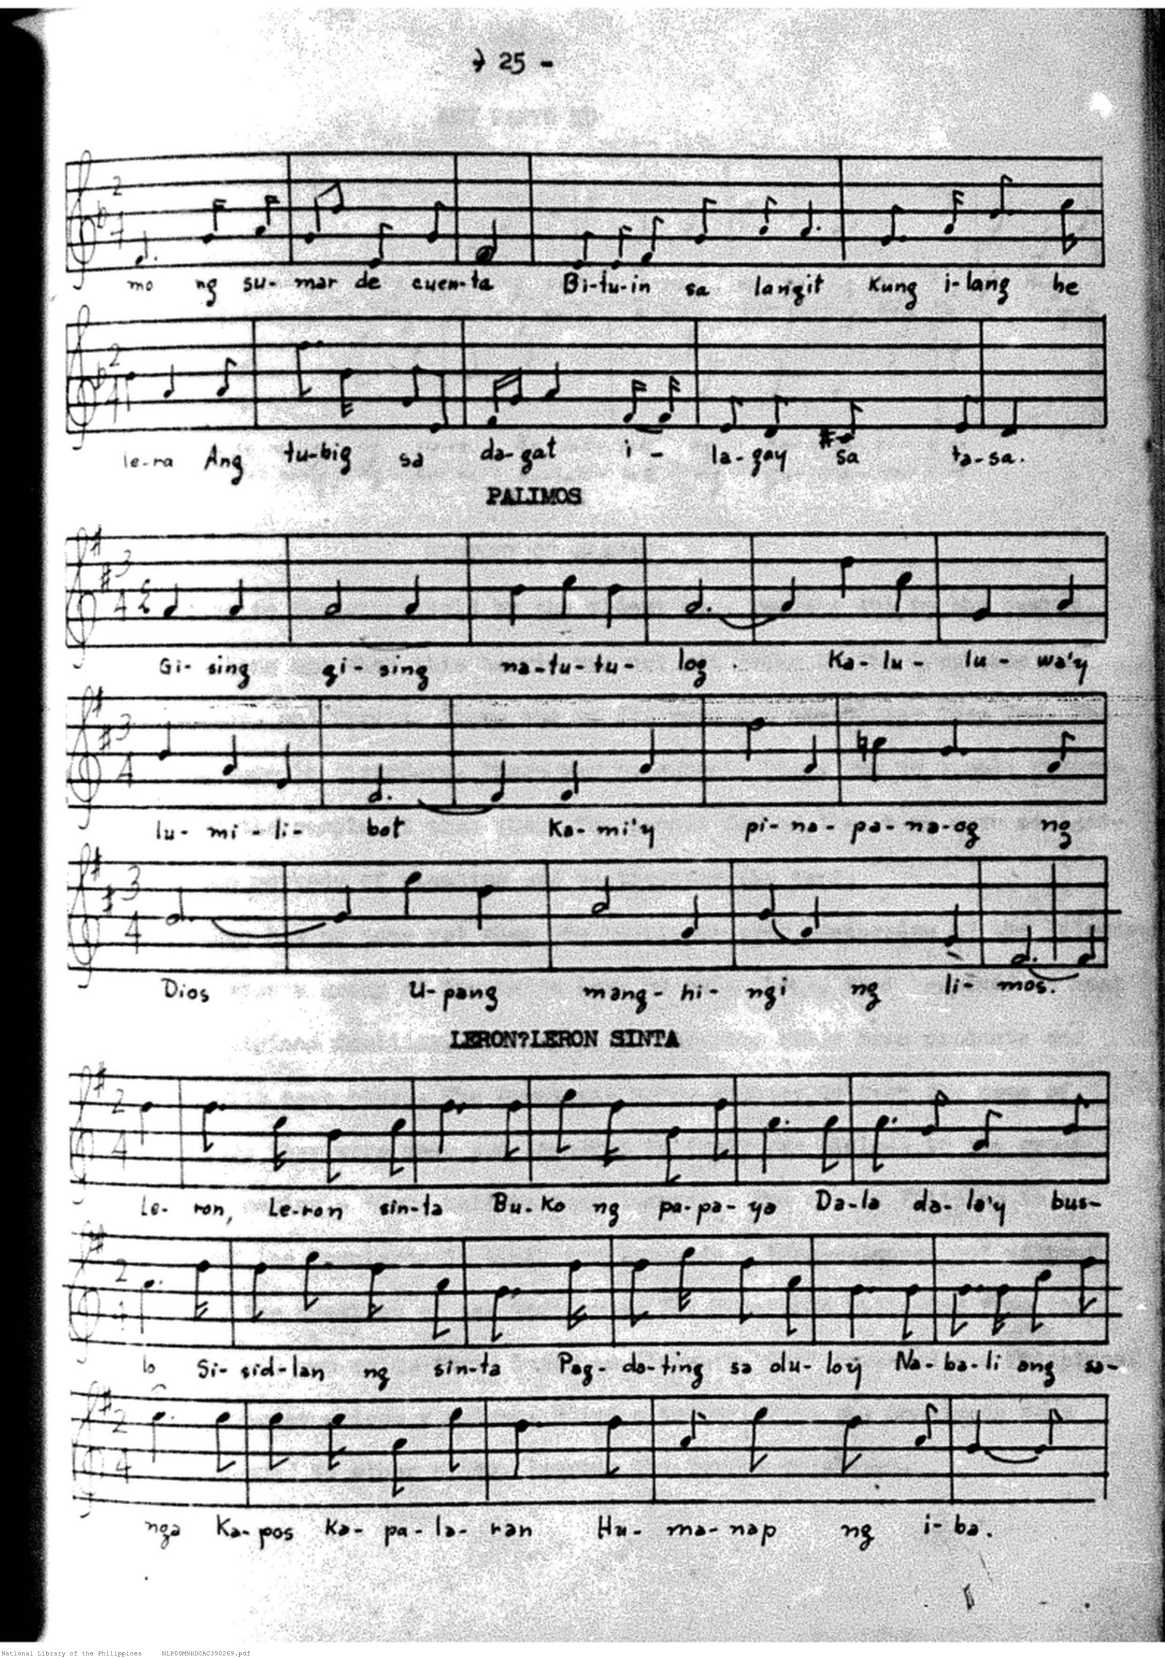 - 25 -
mo ng su- mar de cuen-ta Bi-tu-in sa langit Kung i-lang he
le-ra Ang tu-big sa da-gat i - la-gay sa ta-sa.
PALIMOS
Gi- sing gi- sing na-tu-tu- log. Ka-lu- lu- wa'y
lu- mi- li- bot Ka-mi'y pi-na- pa-na-og ng
Dios U-pang mang-hi- ngi ng li- mos.
LERON?LERON SINTA
Le- ron, Le-ron sin-ta Bu-ko ng pa-pa-ya Da-la da-la'y bus-
lo Si-sid-lan ng sin-ta Pag-da-ting sa du-loy Na-ba-li ang sa-
nga Ka-pos ka-pa-la-ran Hu- ma-nap ng i-ba.
National Library of the Philippines NLP00MNHDCAC390269.pdf